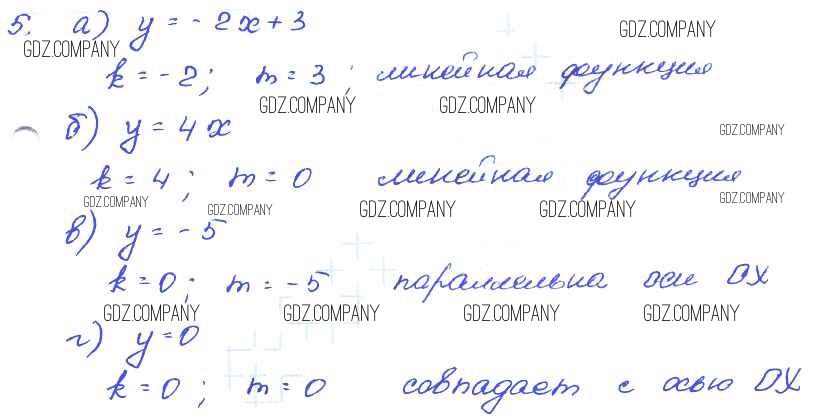 5. а) y = - 2x + 3
GDZ.COMPANY GDZ.COMPANY
k = - 2 ; m = 3 ; линейная функция
GDZ.COMPANY GDZ.COMPANY
б) y = 4x
GDZ.COMPANY
k = 4 ; m = 0 линейная функция
GDZ.COMPANY GDZ.COMPANY GDZ.COMPANY GDZ.COMPANY GDZ.COMPANY
в) y = - 5
k = 0 ; m = - 5 параллельна оси OX
GDZ.COMPANY GDZ.COMPANY GDZ.COMPANY GDZ.COMPANY
г) y = 0
k = 0 ; m = 0 совпадает с осью OX